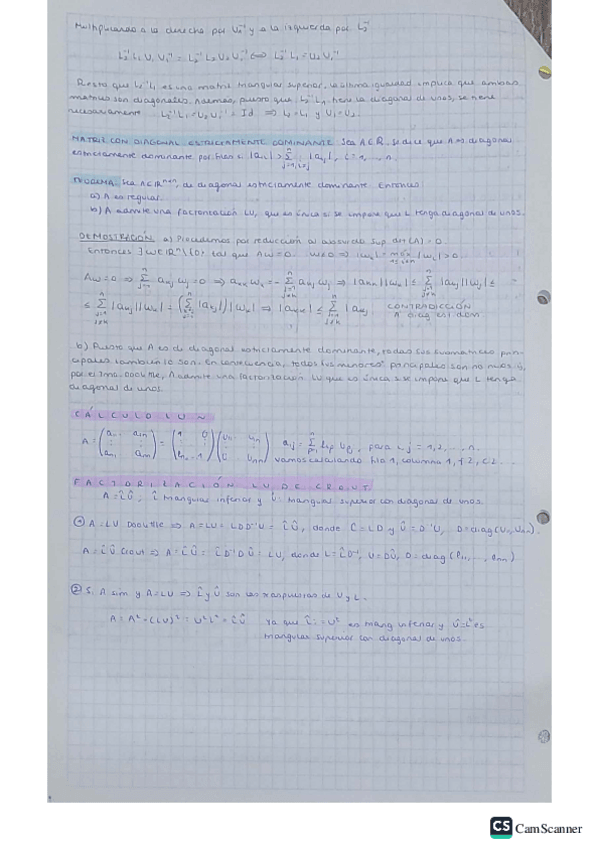 Multiplicando a la derecha por U₁⁻¹ y a la izquierda por L₂⁻¹
L₂⁻¹ L₁ U₁ U₁⁻¹ = L₂⁻¹ L₂ U₂ U₁⁻¹ ⟺ L₂⁻¹ L₁ = U₂ U₁⁻¹
que L₂⁻¹L₁ es una matriz triangular superior, la última igualdad implica que ambas
matrices son diagonales. Además, puesto que L₂⁻¹L₁ tiene la diagonal de unos, se tiene
necesariamente L₂⁻¹L₁ = U₂U₁⁻¹ = Id ⟹ L₂ = L₁ y U₁ = U₂.
MATRIZ CON DIAGONAL ESTRICTAMENTE DOMINANTE Sea A∈ℝ, se dice que A es diagonal
estrictamente dominante por filas si |aᵢᵢ| > Σ |aᵢⱼ|, i = 1, ..., n.
TEOREMA. Sea A∈ℝⁿˣⁿ, de diagonal estrictamente dominante. Entonces:
a) A es regular.
b) A admite una factorización LU, que es única si se impone que L tenga diagonal de unos.
DEMOSTRACIÓN a) Procedemos por reducción al absurdo. Sup. det(A) = 0.
Entonces ∃w∈ℝⁿ\{0} tal que Aw = 0. w≠0 ⟹ |wₖ| = máx |wᵢ| > 0.
Aw = 0 ⟹ Σ aₖⱼ wⱼ = 0 ⟹ aₖₖ wₖ = − Σ aₖⱼ wⱼ ⟹ |aₖₖ||wₖ| ≤ Σ |aₖⱼ||wⱼ| ≤
≤ Σ |aₖⱼ||wₖ| = (Σ |aₖⱼ|)|wₖ| ⟹ |aₖₖ| ≤ Σ |aₖⱼ CONTRADICCIÓN
A diag. est. dom.
b) Puesto que A es de diagonal estrictamente dominante, todas sus submatrices prin-
cipales también lo son. En consecuencia, todos los menores principales son no nulos y,
por el Tma. Doolittle, A admite una factorización LU que es única si se impone que L tenga
diagonal de unos.
CÁLCULO LU
FACTORIZACIÓN LU DE CROUT
A = L̂Û, L̂ triangular inferior y Û triangular superior con diagonal de unos.
① A = LU Doolittle ⟹ A = LU = LDD⁻¹U = L̂Û, donde L̂ = LD y Û = D⁻¹U, D = diag(U₁₁, Uₙₙ).
A = L̂Û Crout ⟹ A = L̂Û = L̂D⁻¹DÛ = LU, donde L = L̂D⁻¹, U = DÛ, D = diag
② Si A sim y A = LU ⟹ L̂ y Û son las traspuestas de U y L.
A = Aᵗ = (LU)ᵗ = UᵗLᵗ = L̂Û Ya que L̂ = Uᵗ es triang inferior y Û = Lᵗ es
triangular superior con diagonal de unos.
CS CamScanner